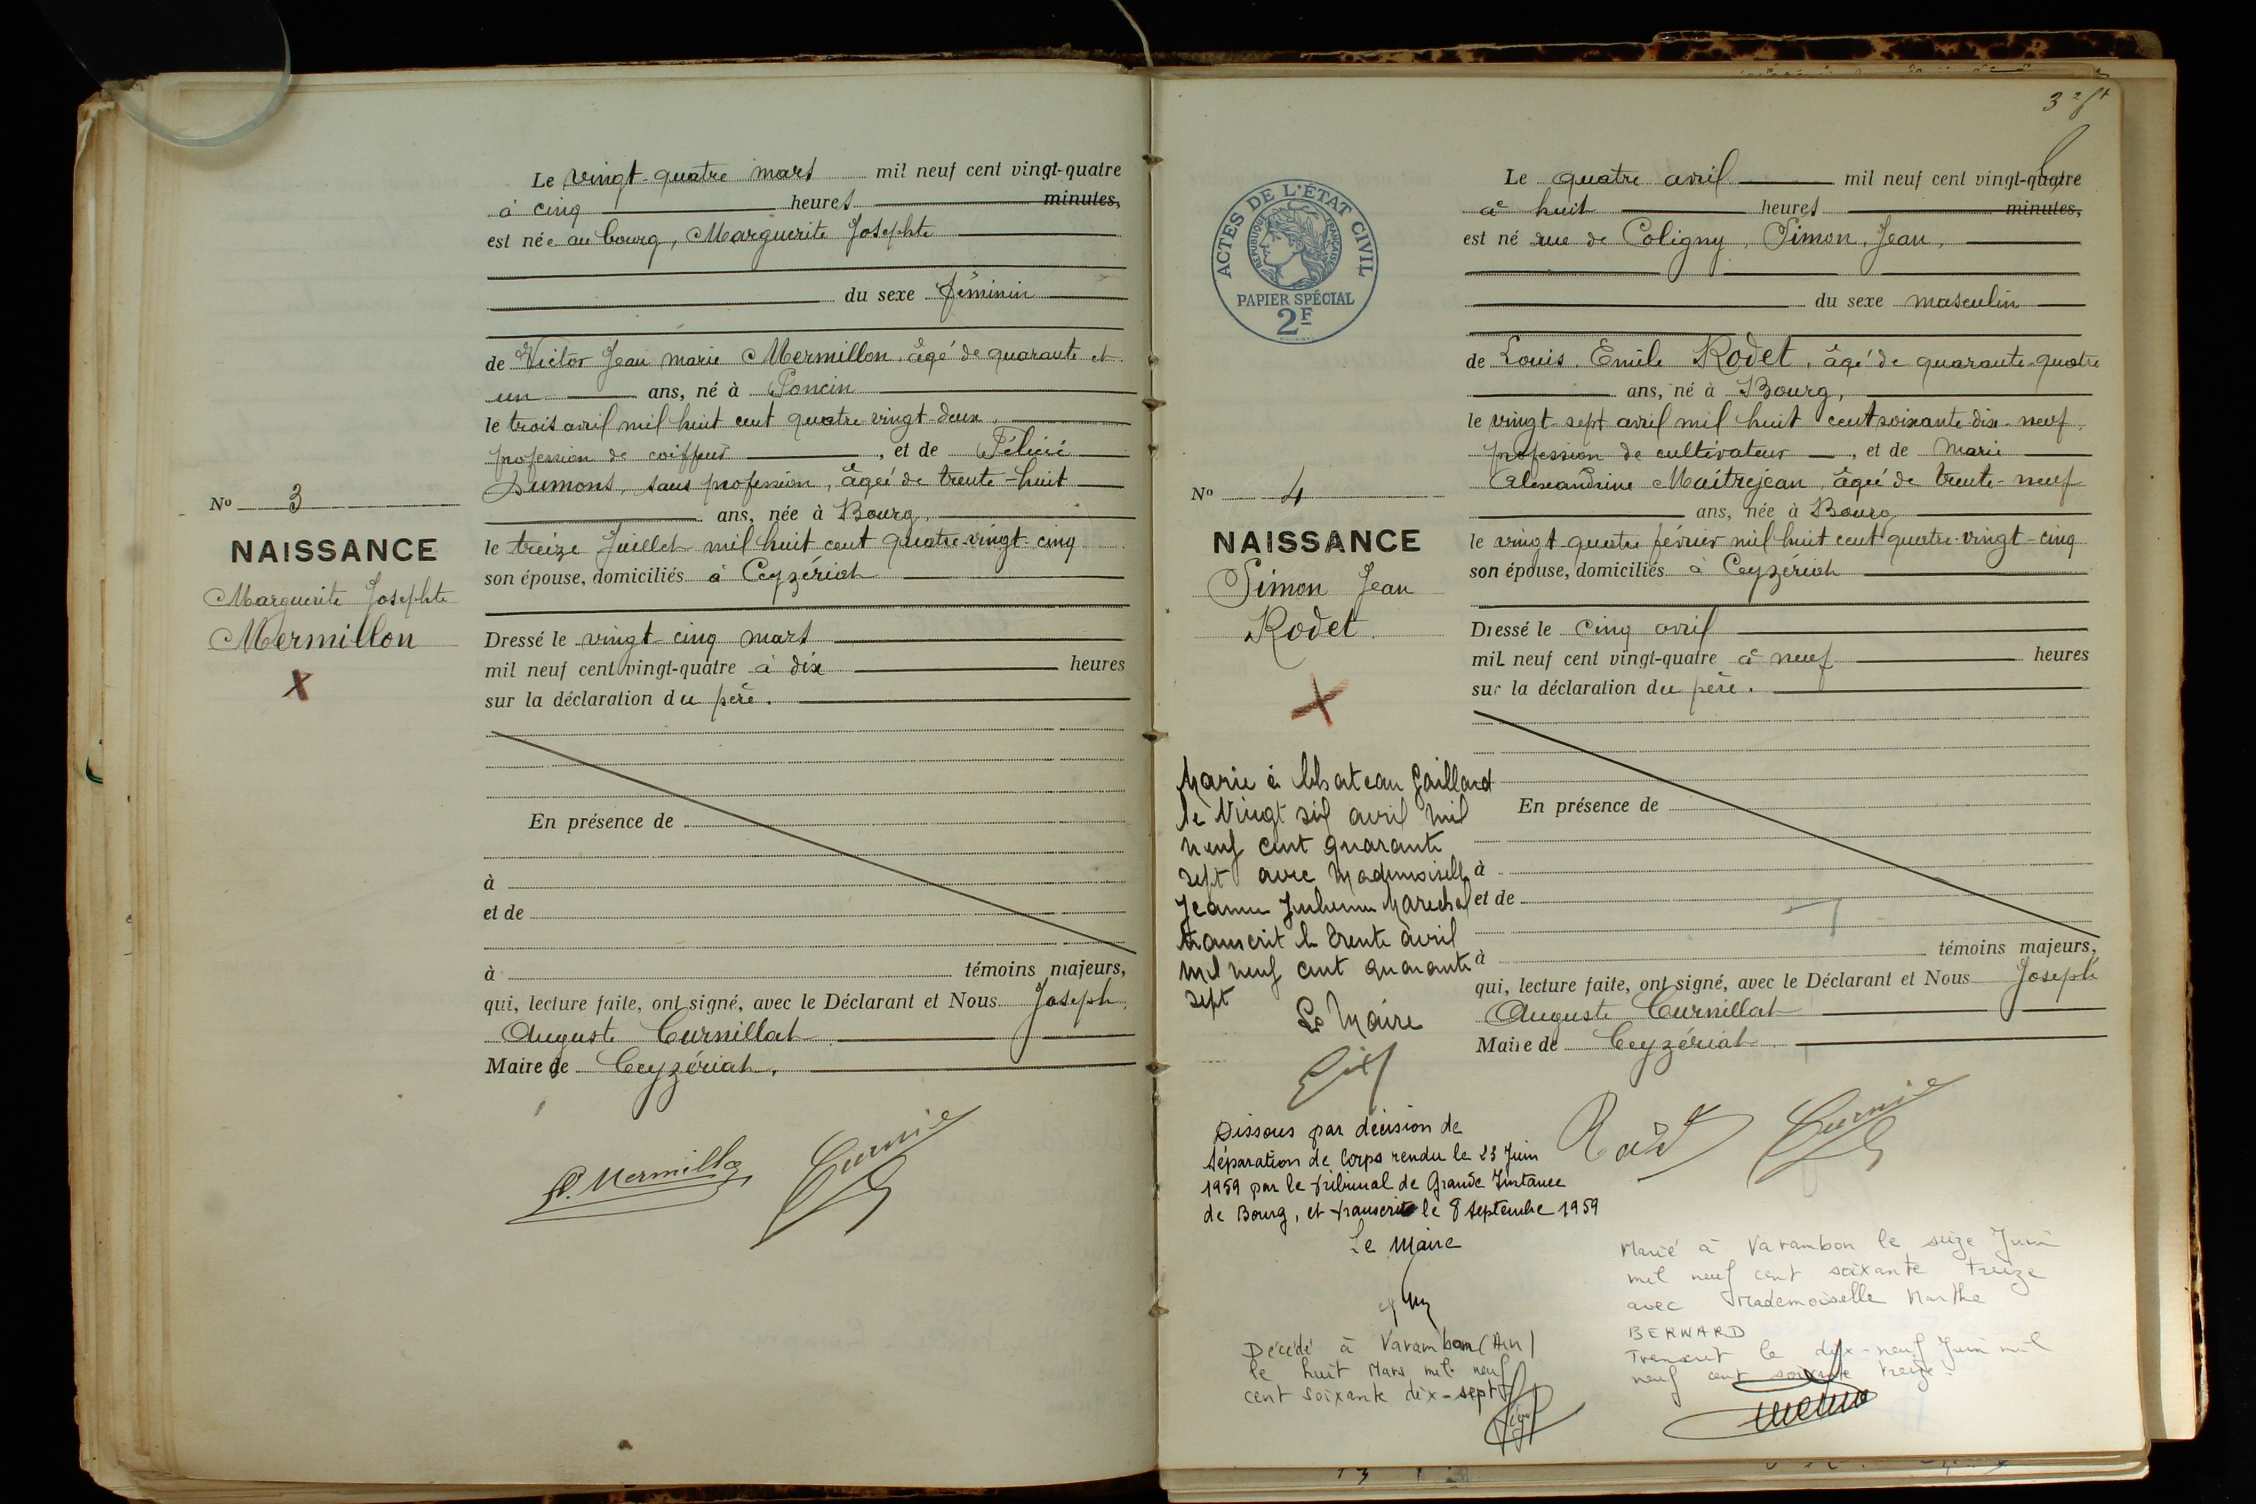 Le vingt-quatre mars mil neuf cent vingt-quatre
à cinq heures minutes,
est née au bourg, Marguerite Josephte
du sexe féminin
de Victor Jean Marie Mermillon, âgé de quarante et
un ans, né à Poncin
le trois avril mil huit cent quatre vingt-deux,
profession de coiffeur, et de Félicie
Dumons, sans profession, âgée de trente-huit
ans, née à Bourg,
le treize Juillet mil huit cent quatre-vingt-cinq
son épouse, domiciliés à Ceyzériat
Dressé le vingt-cinq mars
mil neuf cent vingt-quatre à dix heures
sur la déclaration du père.
En présence de
à
et de
à témoins majeurs,
qui, lecture faite, ont signé, avec le Déclarant et Nous Joseph
Auguste Curnillat
Maire de Ceyzériat.
No 3
NAISSANCE
Marguerite Josephte
Mermillon
X
ACTES DE L'ÉTAT CIVIL
RÉPUBLIQUE FRANÇAISE
PAPIER SPÉCIAL
2F
Le quatre avril mil neuf cent vingt-quatre
à huit heures minutes,
est né rue de Coligny, Simon, Jean,
du sexe masculin
de Louis, Emile Rodet, âgé de quarante-quatre
ans, né à Bourg,
le vingt-sept avril mil huit cent soixante dix-neuf,
profession de cultivateur, et de Marie
Alexandrine Maîtrejean, âgée de trente-neuf
ans, née à Bourg
le vingt-quatre février mil huit cent quatre-vingt-cinq
son épouse, domiciliés à Ceyzériat
Dressé le cinq avril
mil neuf cent vingt-quatre à neuf heures
sur la déclaration du père.
En présence de
à
et de
à témoins majeurs,
qui, lecture faite, ont signé, avec le Déclarant et Nous Joseph
Auguste Curnillat
Maire de Ceyzériat
No 4
NAISSANCE
Simon Jean
Rodet
X
Marié à Chateau Gaillard
le Vingt six avril mil
neuf cent quarante
sept avec Mademoiselle
Jeanne Marechal
transcrit le trente avril
mil neuf cent quarante
sept
Le Maire
Dissous par décision de
Séparation de Corps rendu le 23 Juin
1959 par le tribunal de Grande Instance
de Bourg, et transcrit le 8 Septembre 1959
Le Maire
Décédé à Varambon (Ain)
le huit Mars mil neuf
cent soixante dix-sept
Marié à Varambon le seize Juin
mil neuf cent soixante treize
avec Mademoiselle Marthe
BERNARD
Transcrit le dix-neuf Juin mil
neuf cent soixante treize.